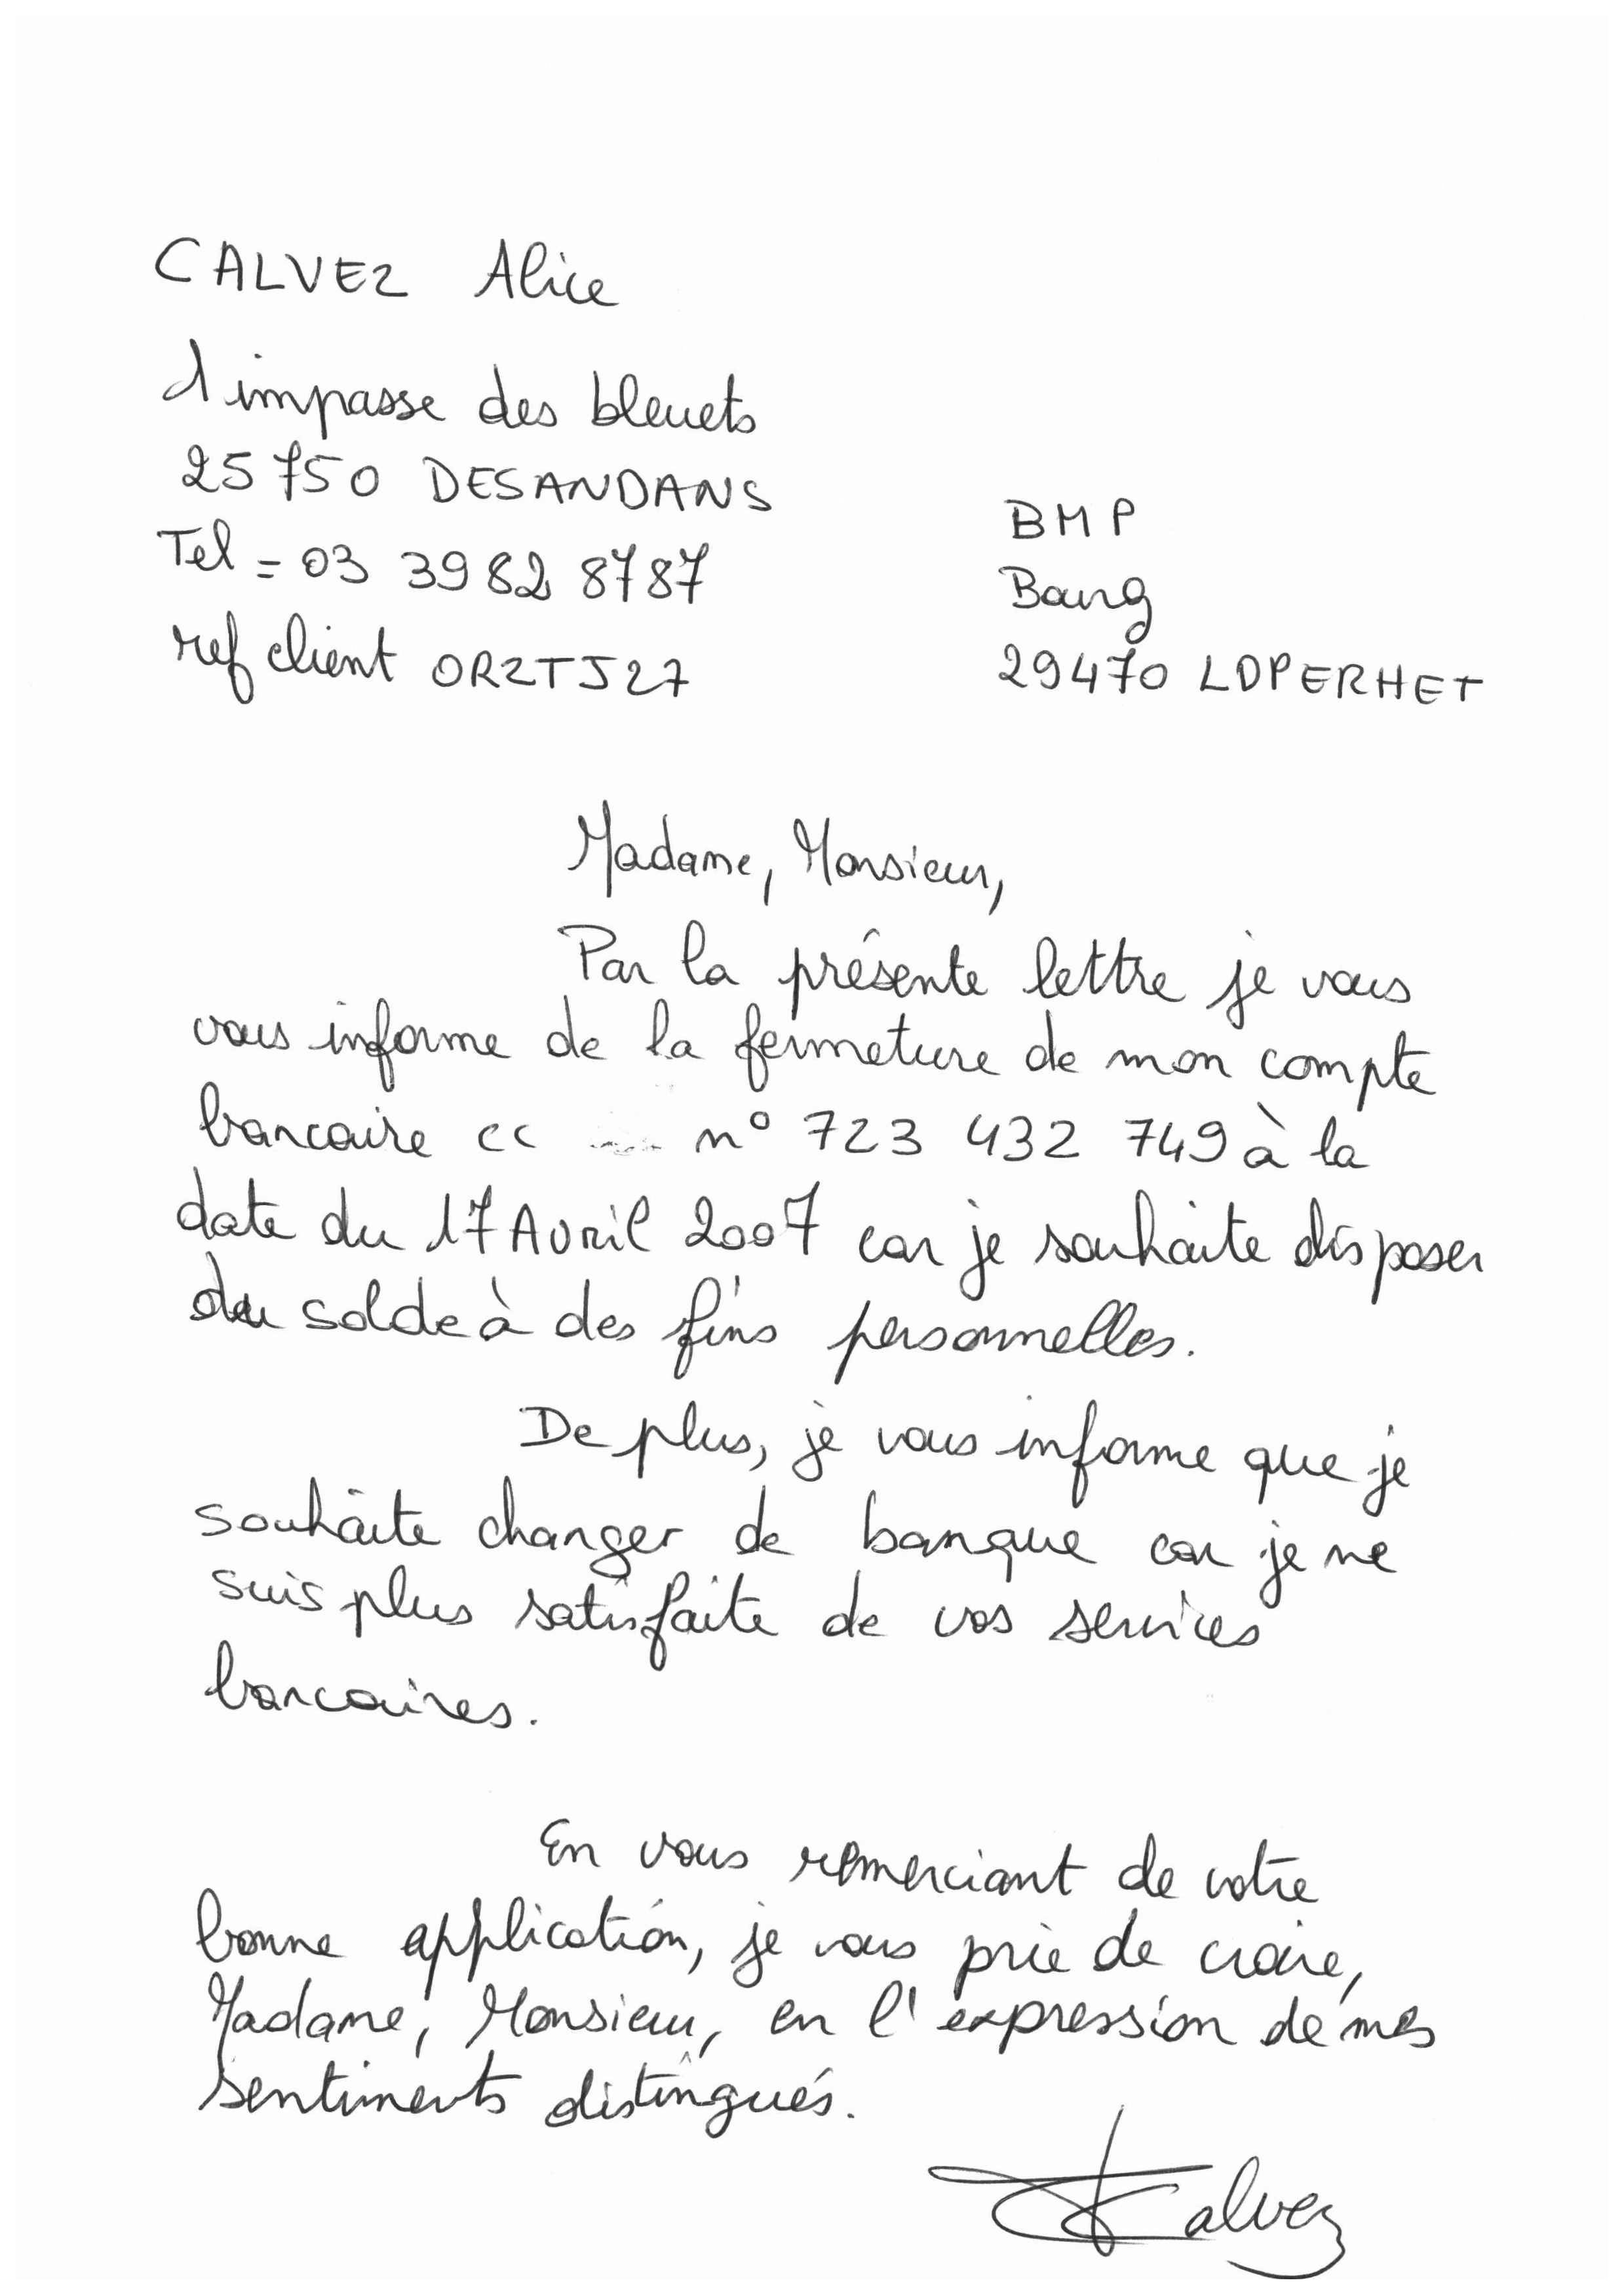 CALVEZ Alice
1 impasse des bleuets
25750 DESANDANS
Tel = 03 39 82 8787
ref client ORZTJ27
BMP
Bourg
29470 LOPERHET
Madame, Monsieur,
Par la présente lettre je vous
vous informe de la fermeture de mon compte
bancaire cc n° 723 432 749 à la
date du 17 Avril 2007 car je souhaite disposer
du solde à des fins personnelles.
De plus, je vous informe que je
souhaite changer de banque car je ne
suis plus satisfaite de vos services
bancaires.
En vous remerciant de votre
bonne application, je vous prie de croire,
Madame, Monsieur, en l'expression de mes
sentiments distingués.
Calvez